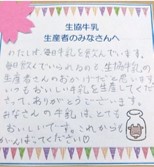 生協牛乳
生産者のみなさんへ
わたしは、毎日牛乳を飲んでいます。
毎日飲んでいられるのも、生協牛乳の
生産者さんのおかげだと思います。
いつもおいしい牛乳を生産してくだ
さって、ありがとうございます。
みなさんの牛乳は、とても
おいしいです。これからも
がんばってください♡